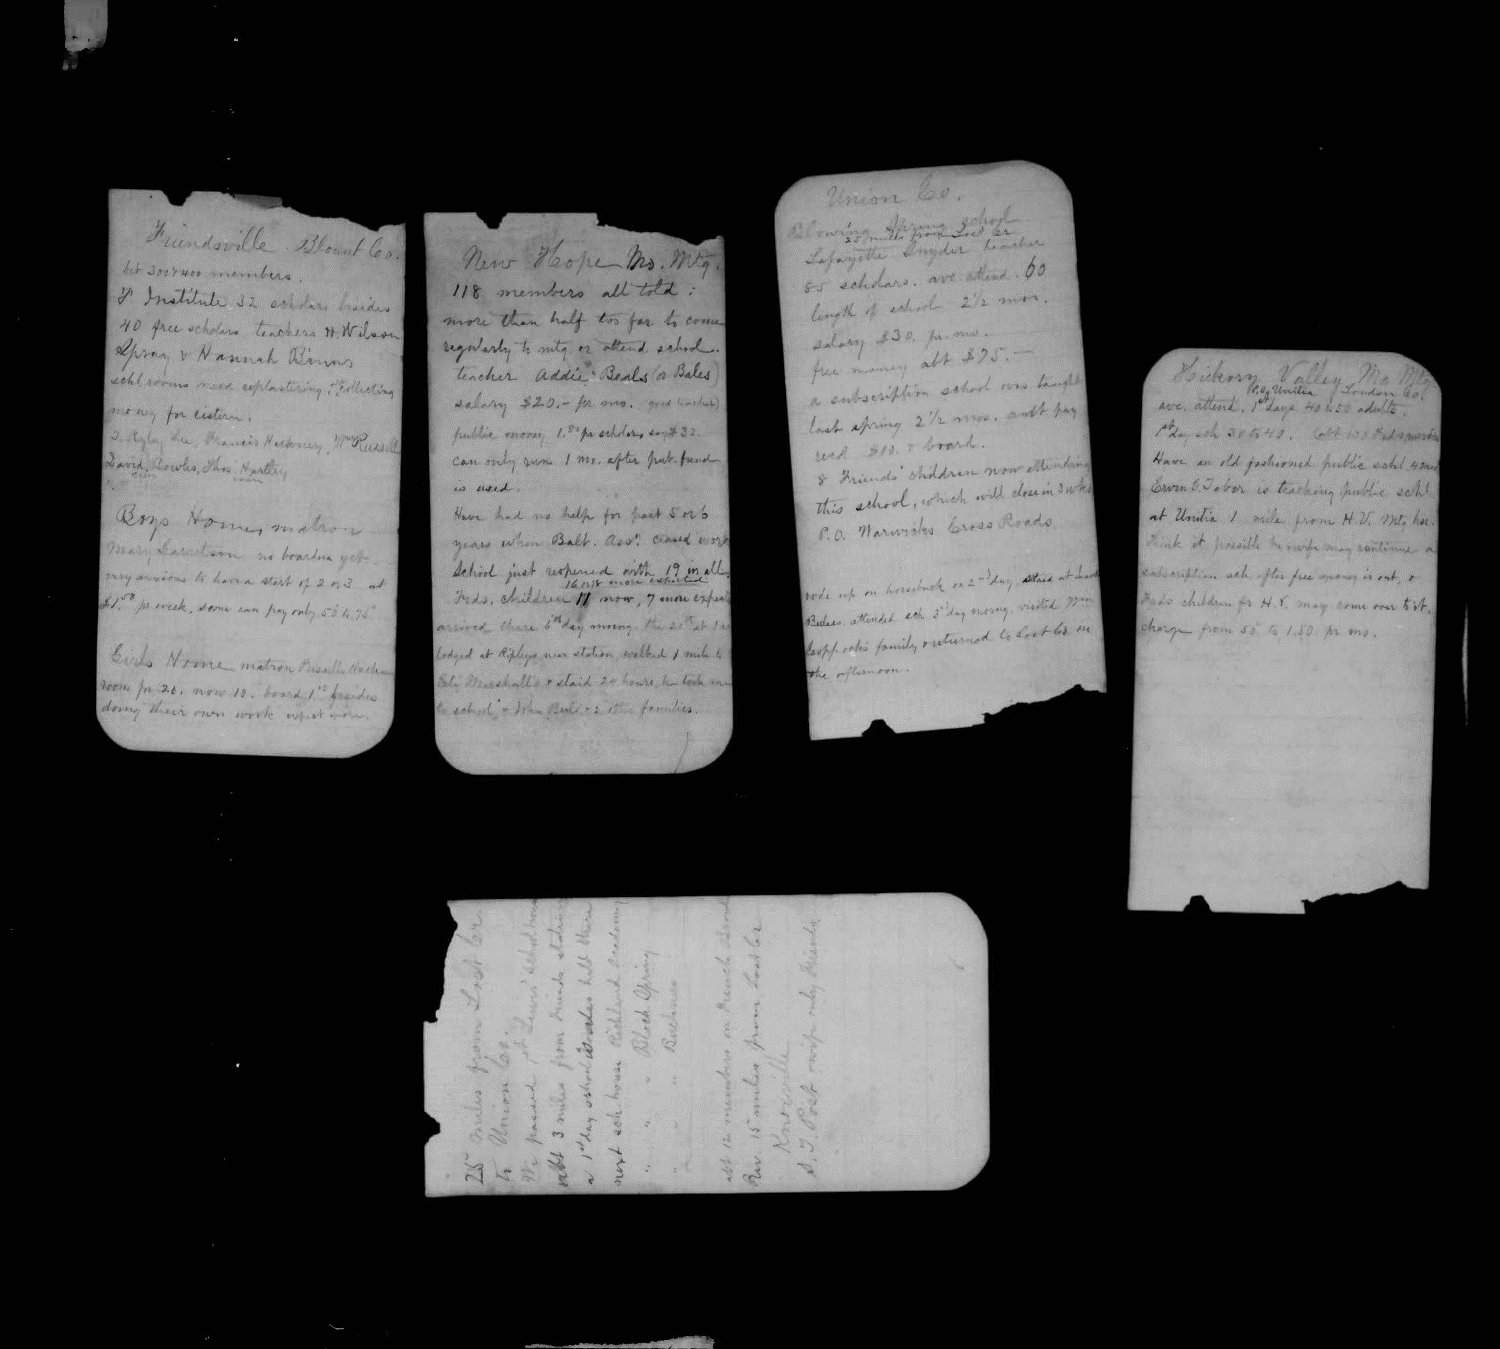 Friendsville Blount Co.
bet 300 & 400 members.
F. Institute 32 scholars besides
40 free scholars teachers H. Wilson
Spray & Hannah Binns
schl rooms need replastering, collecting
money for cistern.
Lee, Francis Hackney, Wm Russell
David Thos. Hartley
Boys Home, matron
Mary Garretson no boarders yet
very anxious to have a start of 2 or 3 at
$1.50 pr week, some can pay only 50 to 75
Girls Home matron
room for 20. now 10. board 1.00 besides
doing their own work
New Hope Mo. Mtg.
118 members all told :
more than half too far to come
regularly to mtg or attend school.
teacher Addie Beals (or Bales)
salary $20.- pr mo. good teacher)
public money 1.80 pr scholar say $32
can only run 1 mo. after pub. fund
is used.
Have had no help for past 5 or 6
years when Balt. Assn. ceased work
School just reopened with 19 in all,
16 or 18 more expected
Frds. children 11 now, 7 more expec
arrived there 6th day morng. the 20th at 1
lodged at Ripleys near station walked 1 mile to
Marshall's & staid 24 hours, he took me
to school, & Wm Beals & 2 other families.
Union Co.
Blowing Spring School
25 miles from Lost Cr
Lafayette Snyder teacher
85 scholars. ave attend. 60
length of school 2½ mos.
salary $30. pr. mo.
free money abt $75.—
a subscription school was taught
last spring 2½ mos. with pay
recd $10. & board.
8 Friends' children now attending
this school, which will close in 3 wks
P.O. Warwicks Cross Roads
rode up on horseback on 2nd day, staid at
attended sch 3rd day morng. visited Wm
family & returned to Lost Cr in
the afternoon.
Hickory Valley Mo Mtg
P.O. Unitia Loudon Co.
ave. attend. 1st days 40 to 50 adults
1st day sch 30 to 40. abt 100
Have an old fashioned public schl 4 mos
Ervin G. Taber is teaching public schl
at Unitia 1 mile from H.V. Mtg hse.
think it possible he & wife may continue a
subscription sch. after free money is out, &
Frds children fr H.V. may come over to it.
charge from 50 to 1.50 pr mo.
25 miles from Lost Cr.
to Union Co.
We passed Lewis' schoolhouse
abt 3 miles from Friends station
a 1st day school is also held there
next sch. house Richland Academy
" " " Block Spring
" " " Buckner
abt 12 members on French Broad
Riv. 15 miles from Lost Cr
Knoxville
S. T. Post & wife only Friends